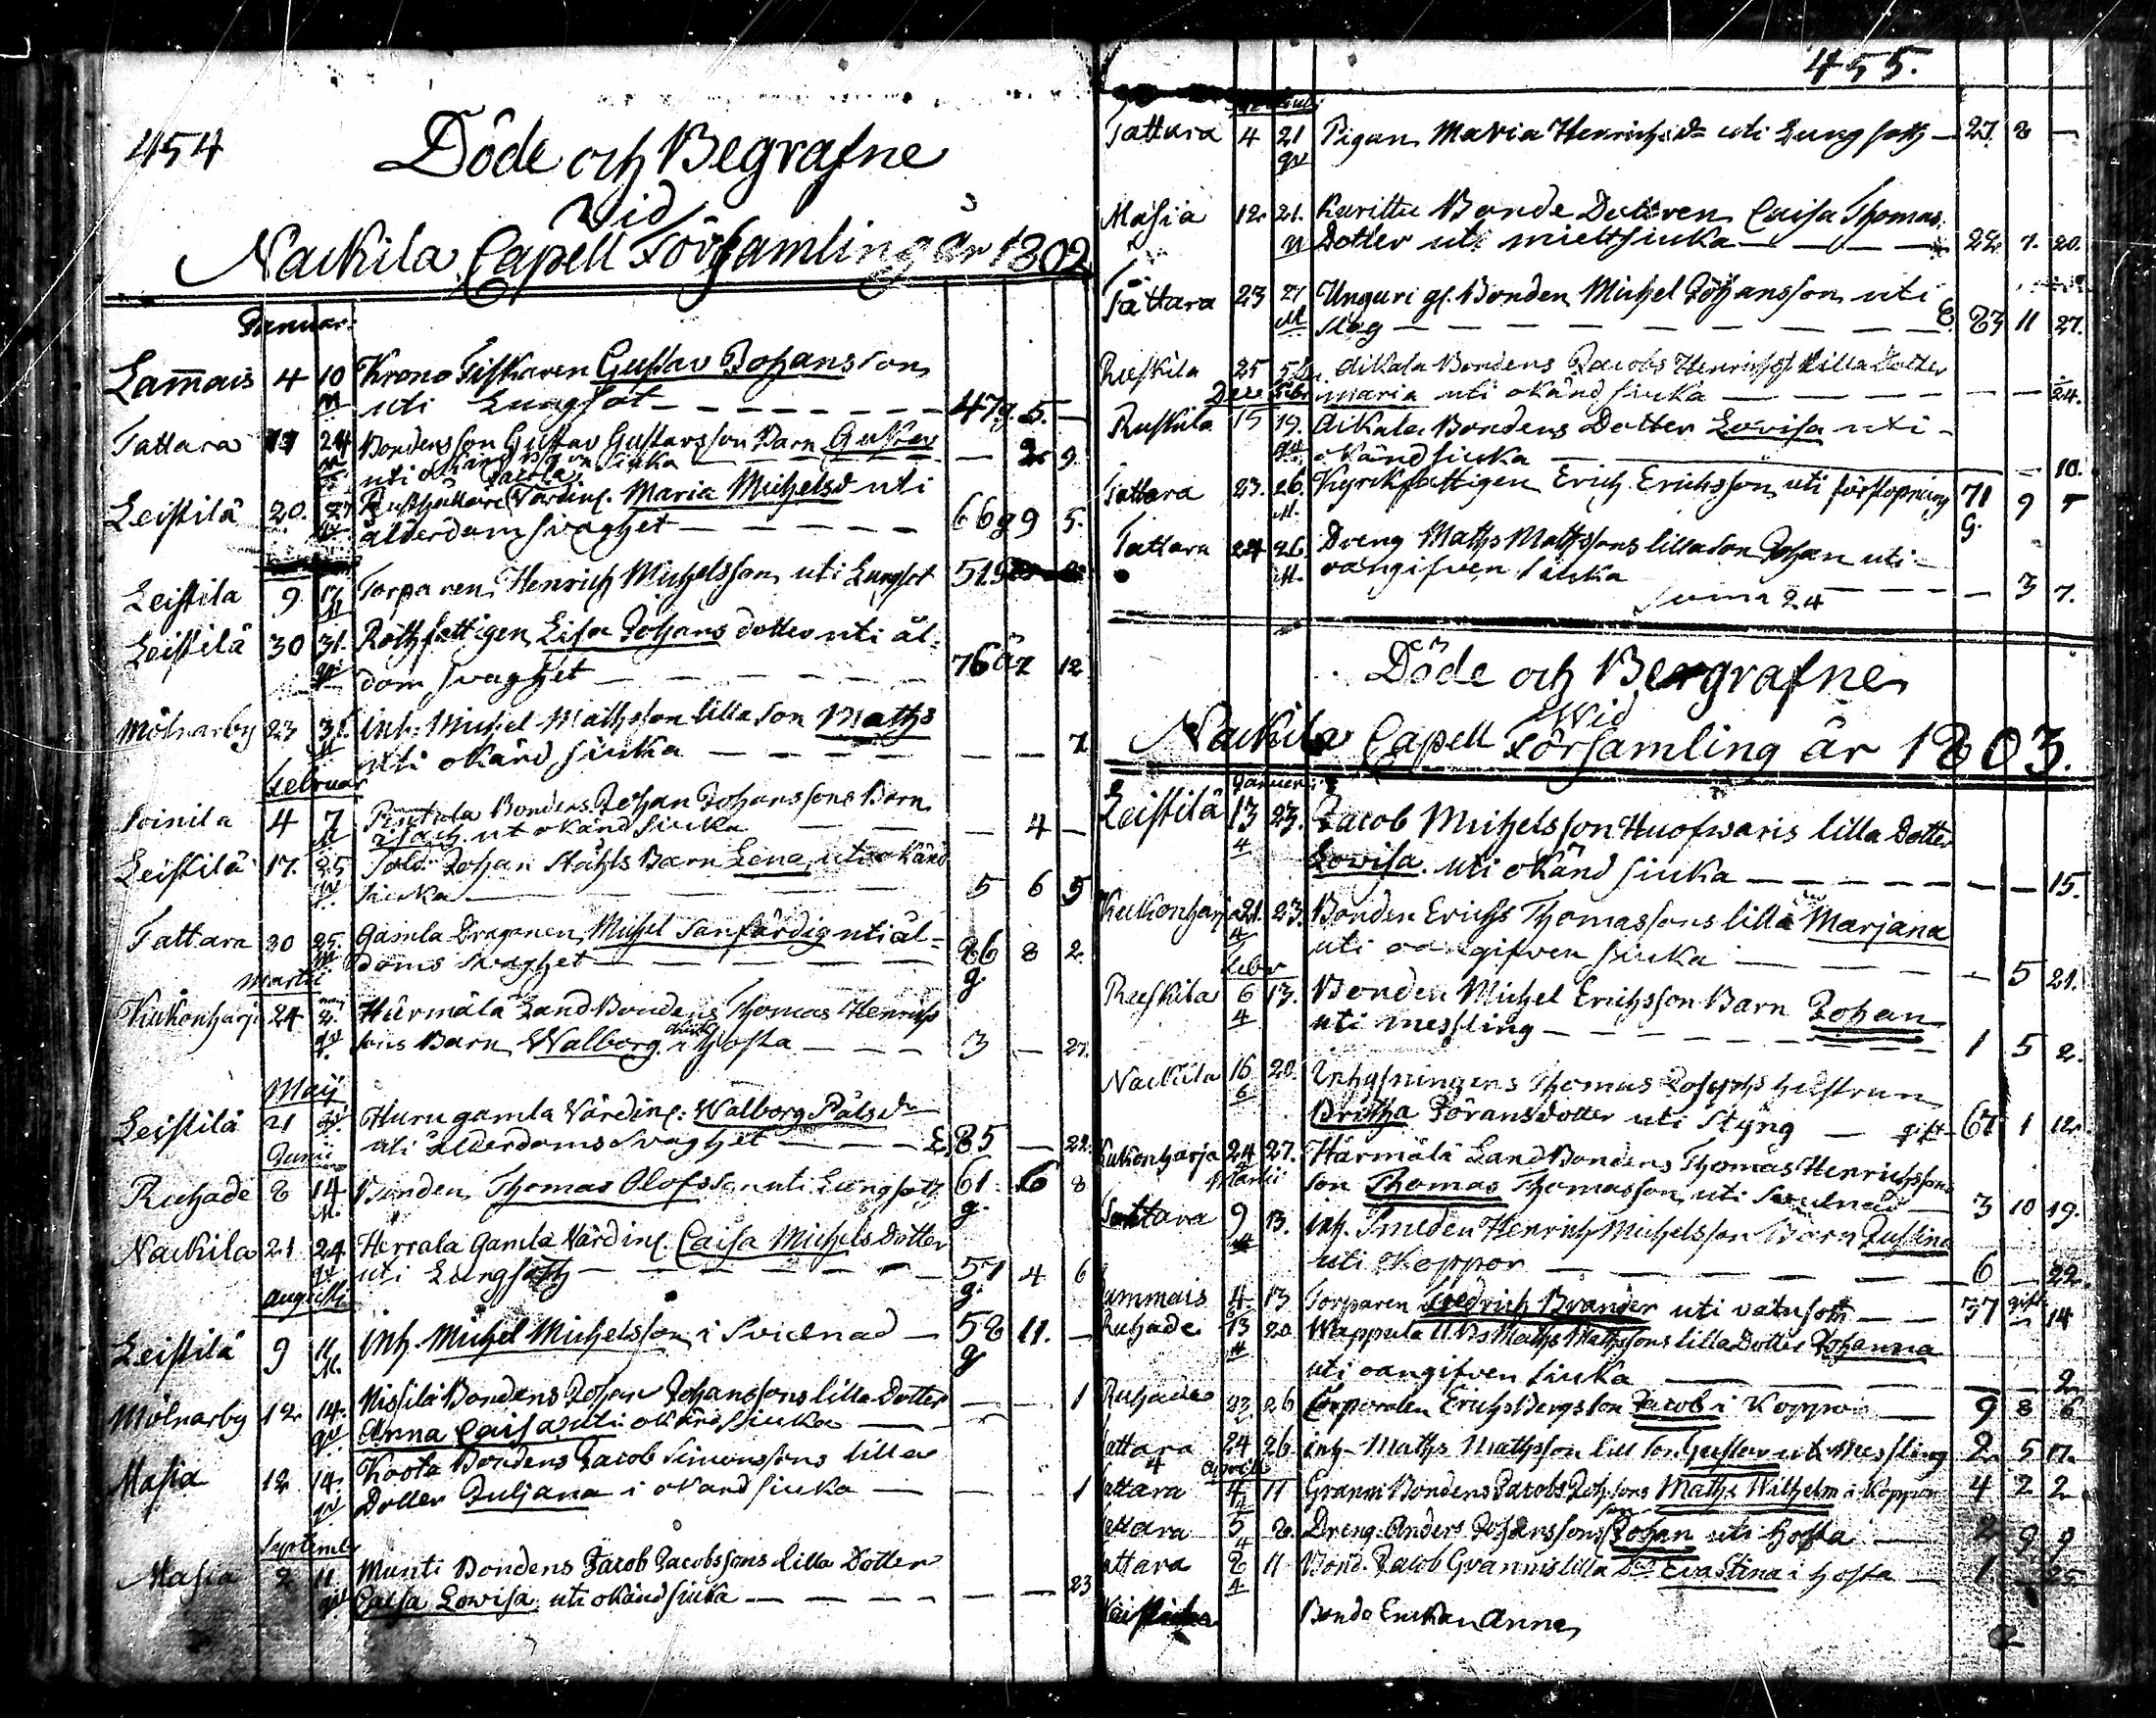 454
Döde och Begrafne
Vid
Nackila Capell Församling år 1802
Januar:
Lam̅ais 4 10 Krono Fiskaren Gustav Johansson
m uti Lungsot 47 g. 5. —
Tattara 24 Bondens son Gustav Gustavsson Barn Gustav
uti okänd siuka — 2 9
Leistilä 20. 27 Värdinf. Maria Michelsd uti
ålderdom svaghet 66 g 9 5.
Leistila 9 17 Torparen Henrich Michelsson uti Lungsot 51 g
Leistilä 30 31. Rothfattigen Lisa Johans dotter uti ål-
dom svaghet 76 7 12
Mölnarby 23 31. Inh: Michel Mathsson lilla son Maths
uti okänd siuka — — 7
Februar
Soinila 4 7 Pintala Bondens Johan Johanssons Barn
ut okänd siuka — 4 —
Leistilä 17. 25 Sold: Johan Ståhls Barn Lena uti okänd
siuka 5 6 5
Tattara 20 25. Gamla Dragonen Michel Sanfärdig uti ål-
doms svaghet 86 8 2
g
Martii
Kukonharja 24 2. Härmälä Landbondens Thomas Henrichs
sons Barn Walborg i hosta 3 — 27.
Maij
Leistilä 21 Huru gamla Värdinf: Walborg Pålsdr
uti ålderdoms svaghet E. 85 — 22.
Junii
Ruhade 8 14 Bonden Thomas Olofsson uti Lungsoth 61. 6 8
M. g.
Nackila 21 24 Herrala Gamla Värdinf. Caisa Michels Dotter
uti Lungsoth 57 4 6
g.
Augusti
Leistilä 9 11 Inh. Michel Michelsson i Svulnad 58 11. —
M. g
Mölnarby 12 14. Nissilä Bondens Johan Johanssons lilla Dotter — — 1
Anna Caisa uti okänd siuka
Masia 12 14. Koota Bondens Jacob Simonssons lilla
Dotter Juliana i okänd siuka — — 1
Septemb
Masia 2 11 Munti Bondens Jacob Jacobssons Lilla Dotter
Caisa Lowisa uti okänd siuka — — 23
455.
Tattara 4 21 Pigan Maria Henrichsdr uti Lungsoth 27. 8 —
Masia 12 21. Karittu Bonde Dotteren Caisa Thomas
Dotter uti mieltsiuka 22. 7. 20.
Tattara 23 27 Unguri gl. Bonden Michel Johansson uti
Slag E. 83 11 27.
Ruskila 25 5 Aikala Bondens Jacobs Henrichss lilla Dotter
Decembr Maria uti okänd siuka — — 24.
Ruskila 15 19. Aikala Bondens Dotter Lovisa uti
okänd siuka — 10.
Tattara 23. 26. Kyrkfattigen Erich Erichsson uti förstopning 71 9 7
M. g.
Tattara 24 26. Dreng Maths Mathssons lilla son Johan uti
M. oangifven siuka — 3 7.
Suma 24
Döde och Begrafne
Wid
Nackila Capell Församling år 1803.
Januari
Leistilä 13 23. Jacob Michelsson Huofwaris lilla Dotter
4 Lovisa uti okänd siuka — — 15.
Kukonharja 21. 23. Bonden Erichs Thomassons lilla Marjana
4 uti oangifven siuka — 5 21.
Febr
Ruskila 6 13. Bonden Michel Erichsson Barn Johan
4 uti messling 1 5 2.
Nackila 16 20. Inhysningens Thomas Josephs hustrun
6 Britha Jöransdotter uti Styng gift 67 1 12
Kukonharja 24 27. Härmälä LandBondens Thomas Henrichssons
Martii son Thomas Thomasson uti Svulnad 3 10 19.
Tattara 9 13. inh. Smeden Henrich Michelsson Barn Justina
uti Koppor 6 — 22.
Lammais 4 13 Torparen Fredrich Brander uti vatusoth 37 gift 14
Ruhade 13 20 Wappula Maths Mathssons lilla Dotter Johanna
4 uti oangifven siuka — — 2
Ruhade 23 26 Corporalen Erichs Bergs son Jacob i Koppor 9 8 6
Tattara 24 26 inh. Maths Mathsson lill son Gustav uti Messling 2 5 17.
4 Aprili
Tattara 4 11 Granni Bondens Jacobs Johssons Maths Wilhelm i Koppor 4 2 2
Tattara 5 2. Dreng Anders Johanssons son Johan uti hosta 2 9 9
Tattara 8 11 Bond. Jacob Grannis lilla dr Eva Stina i hosta 1 — 25
Bonde Enckan Anna